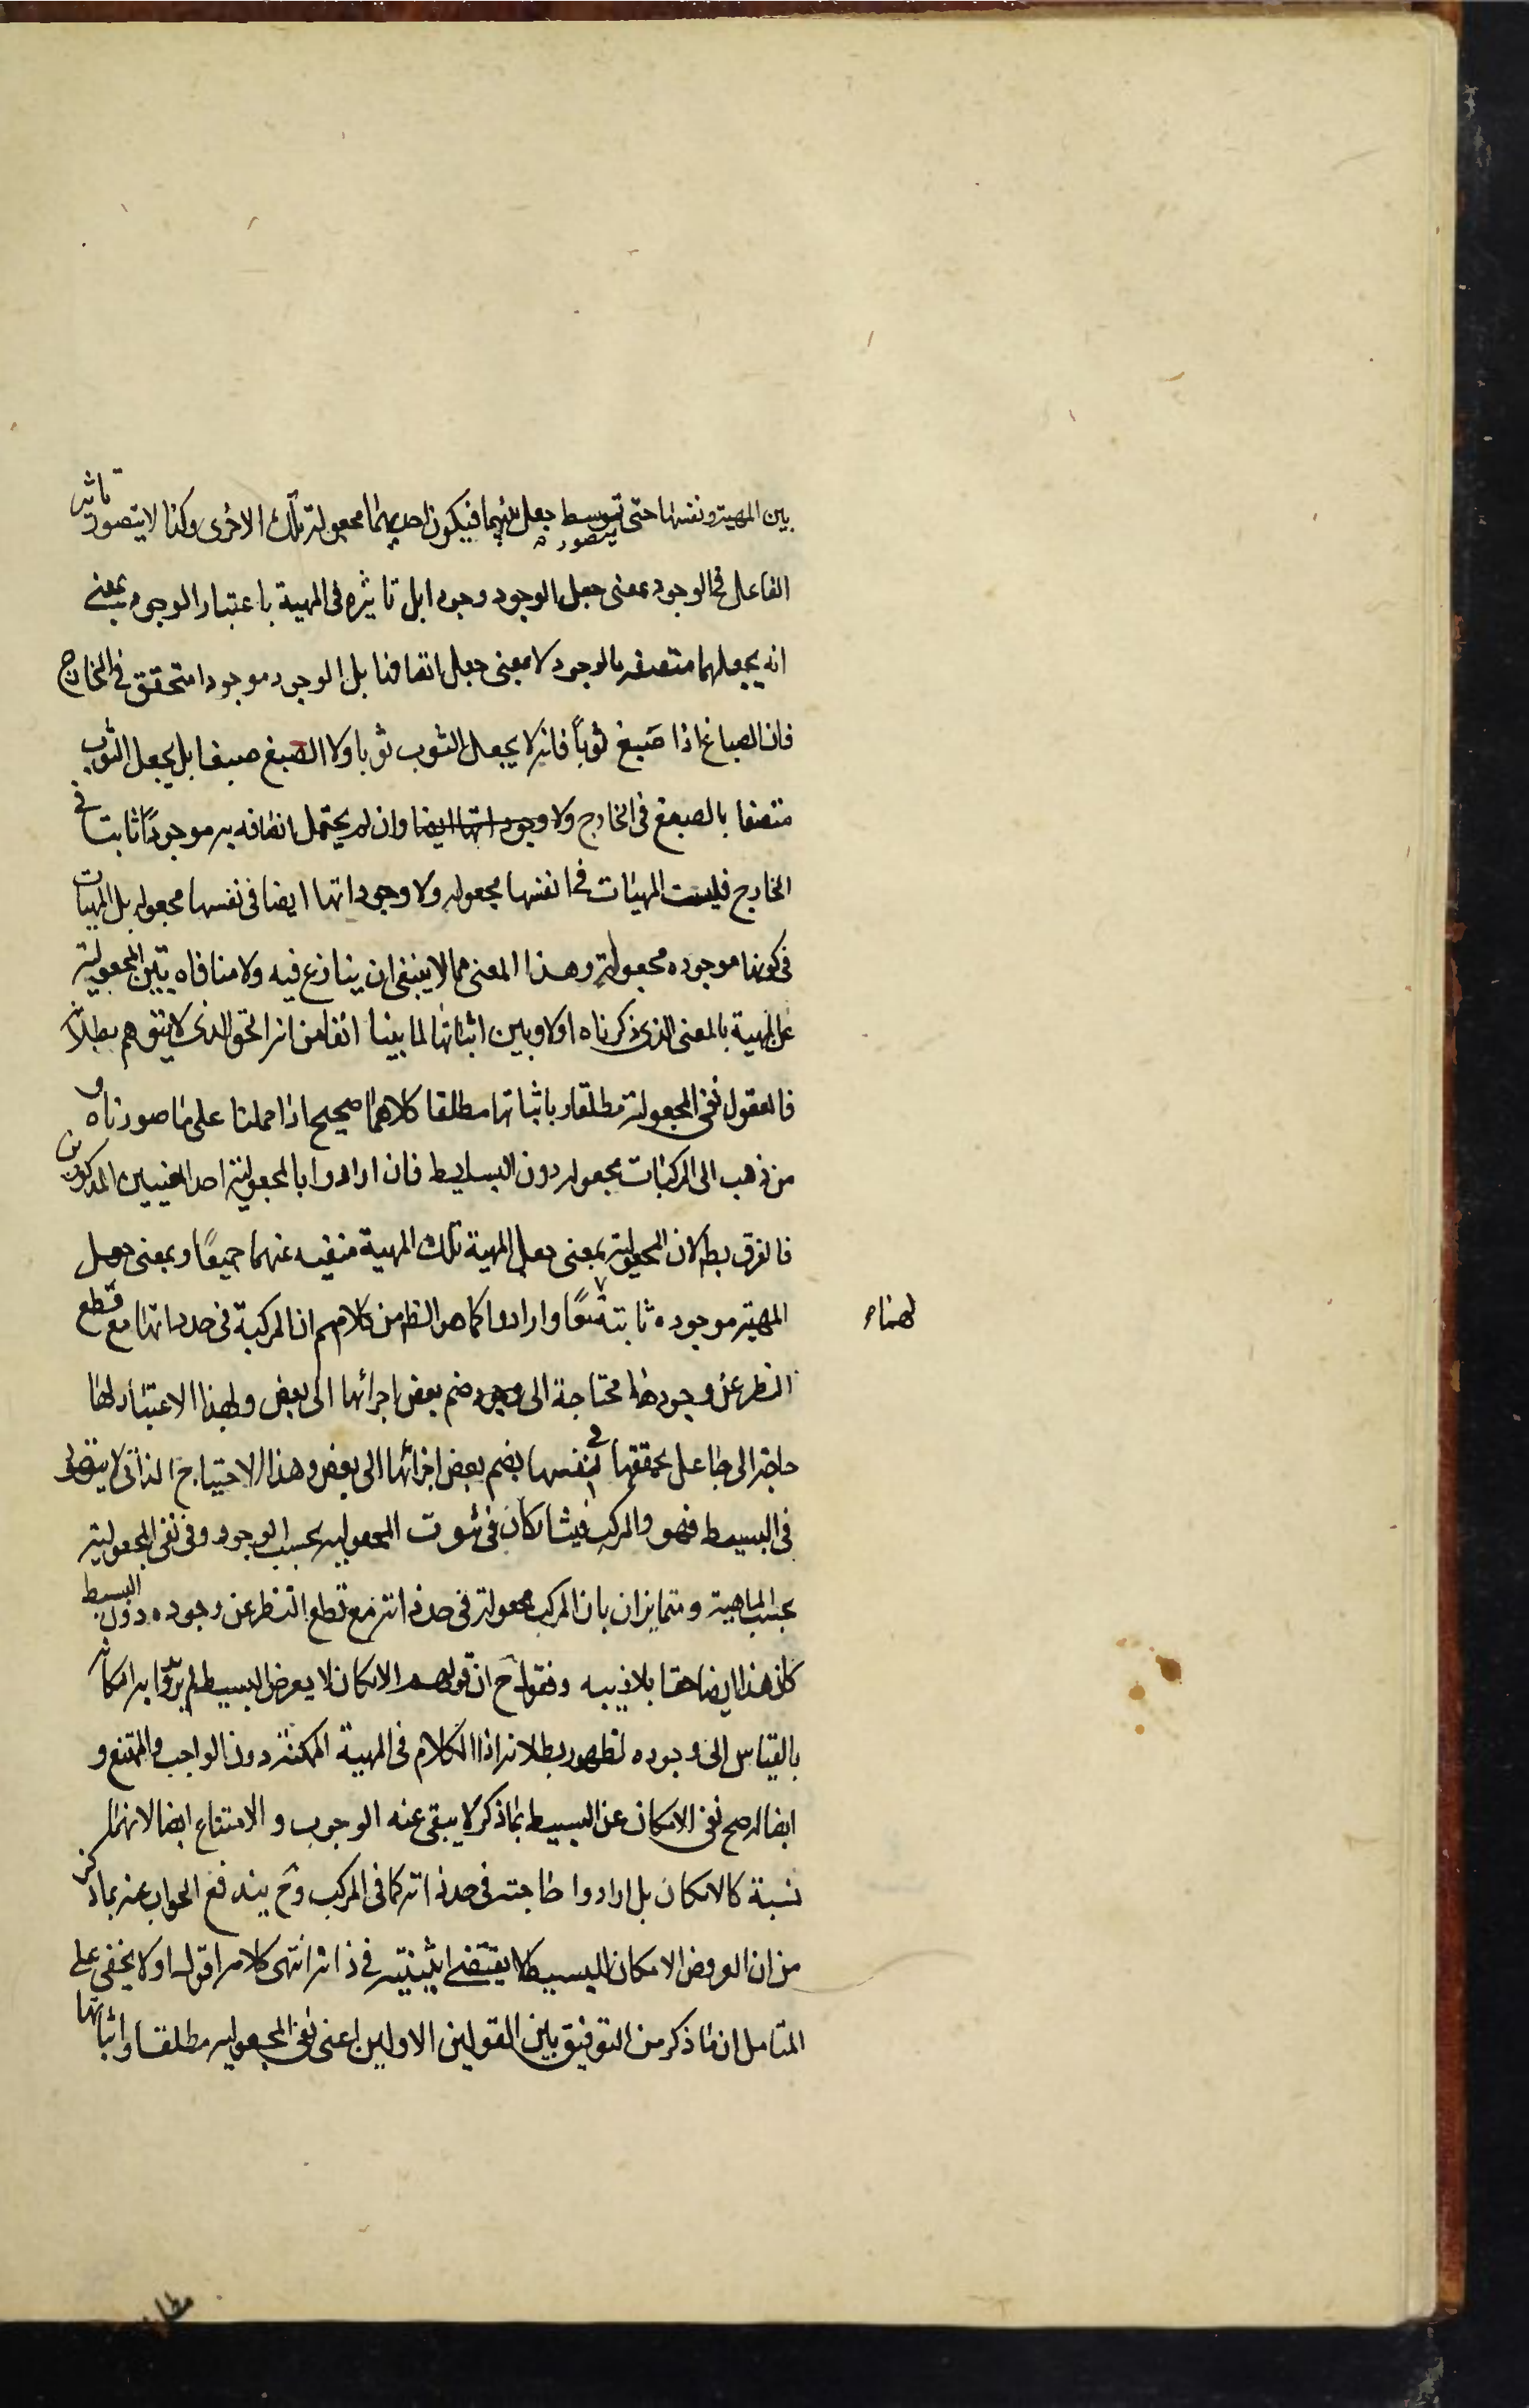 بين المهية ونفسها حتى يتصور توسط جعل بينهما فيكون احديهما مجعولة تلك الاخرى وكذا لا يتصور تاثير
الفاعل فى الوجود بمعنى جعل الوجود وجودا بل تاثيره فى المهية باعتبار الوجود بمعنى
انه يجعلهما متصفه بالوجود لا بمعنى جعل اتصافنا بل الوجود موجودا متحقق فى الخارج
فان الصباغ اذا صَبغ ثوبًا فانه لا يجعل الثوب ثوبا ولا الصبغ صبغا بل يجعل الثوب
متصفا بالصبغ فى الخارج ولا وجوداتها ايضا وان لم يحتمل اتصافه به موجودًا ثابتا فى
الخارج فليست المهيات فى انفسها مجعوله ولا وجوداتها ايضا فى نفسها مجعوله بل المهيات
فى كونها موجوده مجعولةٍ وهذا المعنى مما لا ينبغى ان ينازع فيه ولا منافاه بين المجعولية
عن المهية بالمعنى الذى ذكرناه اولا وبين اثباتها لما بينا انفا من انه الحق الذى لا يتوهم بطلانه
فالعقول نفى المجعولية مطلقا وباثباتها مطلقا كلاهما صحيح اذا حملنا على ما صورناه و
من ذهب الى المركبات مجعوله دون البسايط فان ارادوا بالمجعولية احد المعنيين المذكورين
فالفرق بط لان المجعولية بمعنى جعل المهية تلك المهية منفيه عنهما جميعًا وبمعنى جعل
المهية موجوده ثابتة وارادوا كما هو الظ من كلامهم ان المركبة فى حد ذاتها مع قطع
لهما
النظر عن وجودها محتاجة الى وجود ضم بعض اجزائها الى بعض ولهذا الاعتبار لها
حاجة الى جاعل يحققها فى نفسها بضم بعض اجزائها الى بعض وهذا الاحتياج الذاتى لا يتصور
فى البسيط فهو والمركب يتشاركان فى ثبوت المجعوليه بحسب الوجود وفى نفى المجعولية
بحسب الماهية ومتمايزان بان المركب مجعولة فى حد ذاته مع قطع النظر عن وجوده دون البسيط
كان هذا ايضا حقا بلا ريبه وفقولهم ح ان قولهم الامكان لا يعرض البسيط لم يريدوا به امكانه
بالقياس الى وجوده لظهور بطلانه اذا الكلام فى المهية الممكنة دون الواجب والممتنع و
ايضا لو صح نفى الامكان عن البسيط بما ذكر لا يبقى عنه الوجوب و الامتناع ايضا لانهما
نسبة كالامكان بل ارادوا حاجته فى حد ذاته كما فى المركب وح يندفع الجواب عنه بما ذكر
من ان العروض الامكان للبسيط لا يقتضى اثنينية فى ذاته انتهى كلامه اقول اولا يخفى على
المتامل ان ما ذكر من التوفيق بين القولين الاولين اعنى نفى المجعوليه مطلقا واثباتها